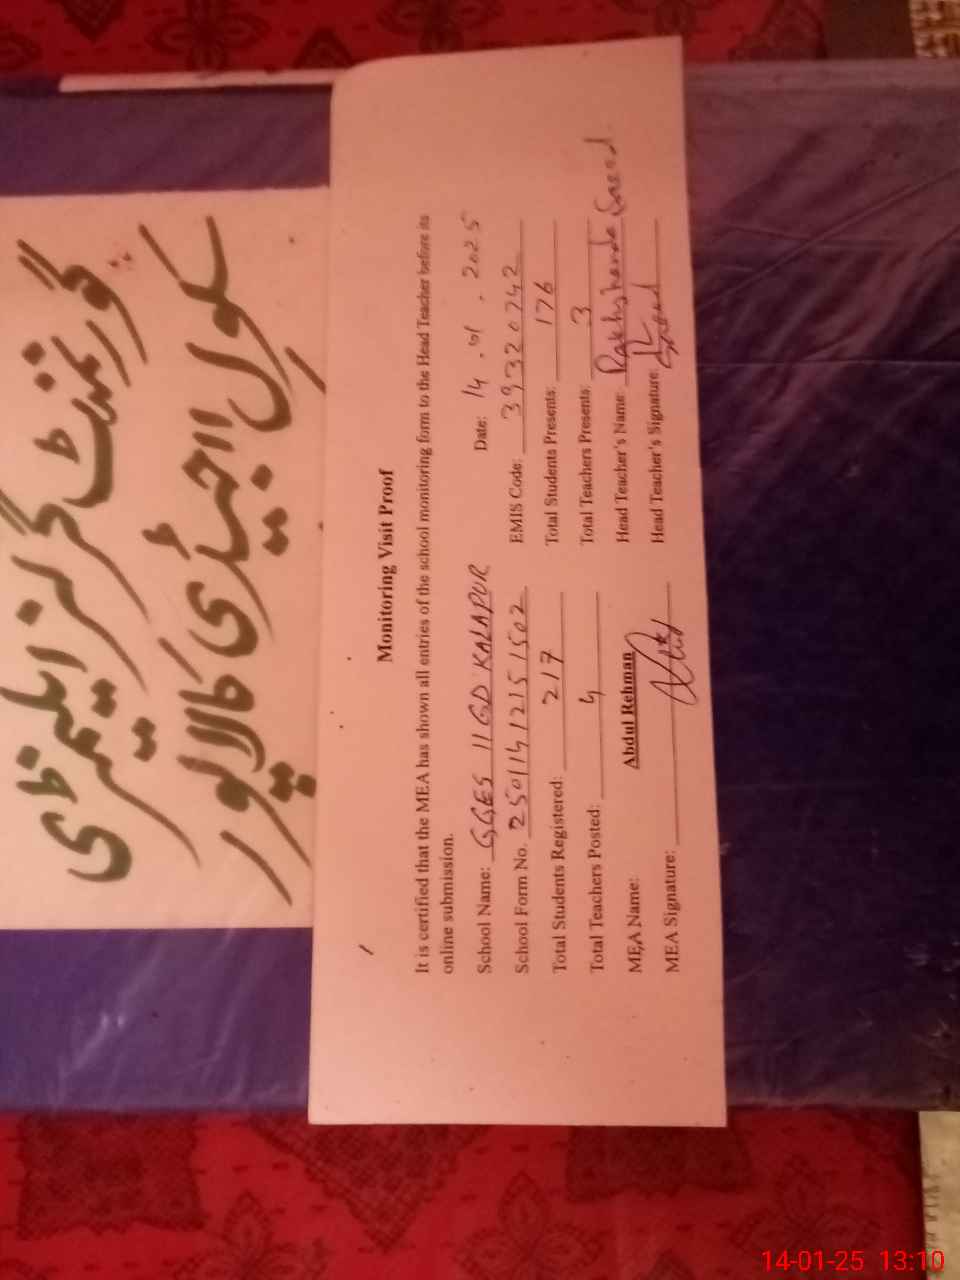 گورنمنٹ گرلز ایلیمنٹری
سکول ااجیڈی کالاپور
Monitoring Visit Proof
It is certified that the MEA has shown all entries of the school monitoring form to the Head Teacher before its
online submission.
School Name: GGES 11GD KALAPUR Date: 14.01.2025
School Form No. 25011412151502 EMIS Code: 39320742
Total Students Registered: 217 Total Students Presents: 176
Total Teachers Posted: 4 Total Teachers Presents: 3
MEA Name: Abdul Rehman Head Teacher's Name: Rakhshanda Saeed
MEA Signature: Head Teacher's Signature:
14-01-25 13:10